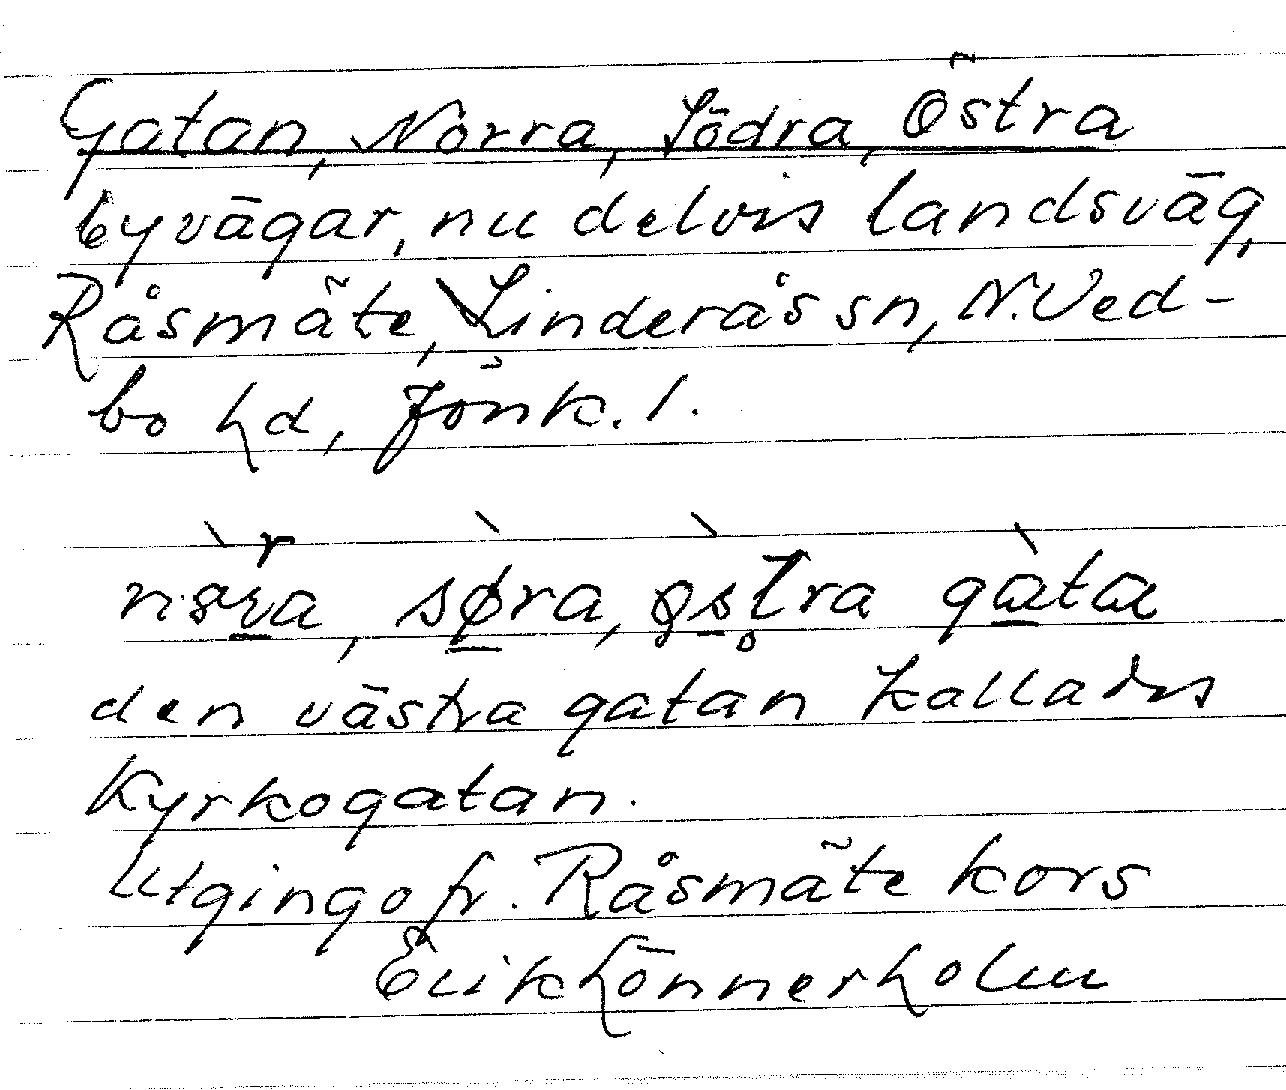 Gatan, Norra, Södra, Östra
byvägar, nu delvis landsväg,
Råsmäte, Linderås sn, N. Ved-
bo hd, Jönk. l.
søra, gata
den västra gatan kallades
Kyrkogatan.
Utgingo fr. Råsmäte kors
Erik Lönnerholm